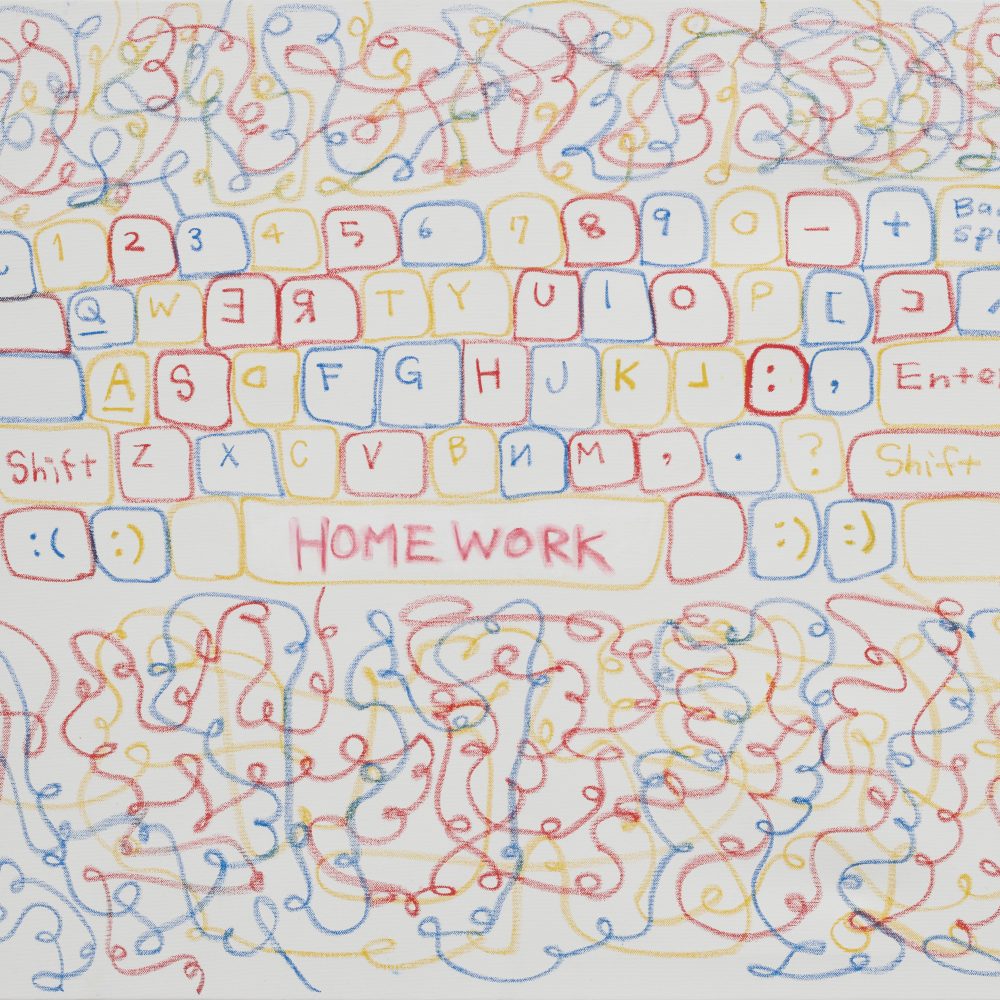 1 2 3 4 5 6 7 8 9 0 - + Ba
Sp
Q W Ǝ Я T Y U I O P [ ]
A S D F G H J K ⅃ : , Ente
Shift Z X C V B И M , . ? Shift
:( :) HOMEWORK :) :)